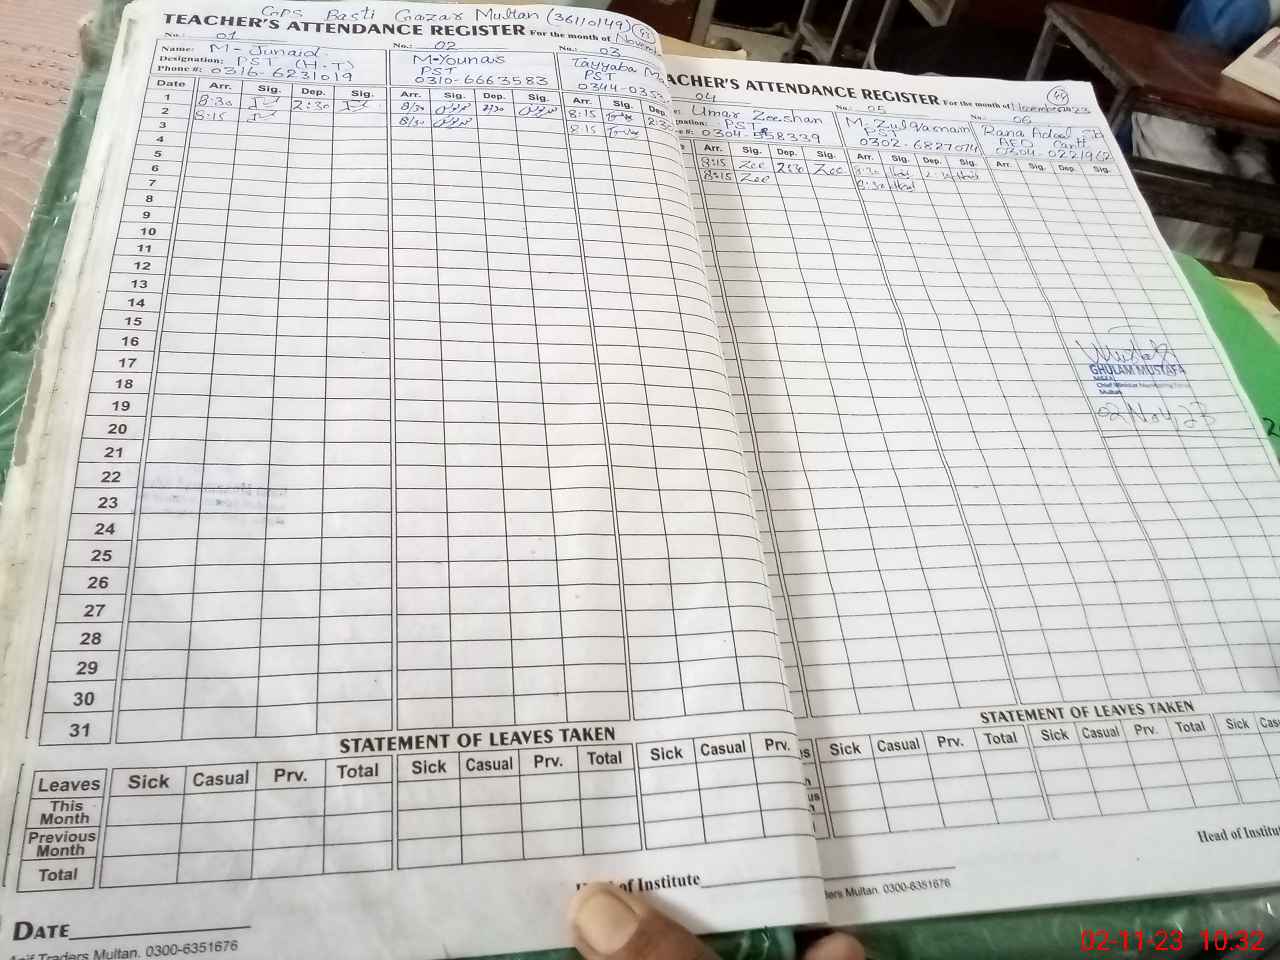 GPS Basti Gazar Multan (36110149) 43
TEACHER'S ATTENDANCE REGISTER For the month of Novem
No.: 01 No.: 02 No.: 03
Name: M-Junaid M-Younas Tayyaba
Designation: PST (H.T) PST PST
Phone #: 0316-6231019 0310-6663583 0344-035
Date Arr. Sig. Dep. Sig. Arr. Sig. Dep. Sig. Arr. Sig. Dep.
1 8:30 2:30 8/30 2/30 8:15 2:30
2 8:15 8/30 8:15
3
4
5
6
7
8
9
10
11
12
13
14
15
16
17
18
19
20
21
22
23
24
25
26
27
28
29
30
31
STATEMENT OF LEAVES TAKEN
Leaves Sick Casual Prv. Total Sick Casual Prv. Total Sick Casual Prv.
This Month
Previous Month
Total
of Institute
DATE
Traders Multan. 0300-6351676
ACHER'S ATTENDANCE REGISTER For the month of November 2023
04 No.: 05 No.: 06
Umar Zeeshan M. Zulqarnain Rana Adeel
PST PST AEO Cantt
0302-6827074 0304-0221962
Arr. Sig. Dep. Sig. Arr. Sig. Dep. Sig. Arr. Sig. Dep. Sig.
8:15 Zee 2:30 Zee 8:30
8:15 Zee 8:30
GHULAM MUSTAFA
Chief Minister Monitoring Force
Multan
02 Nov, 23
STATEMENT OF LEAVES TAKEN
Sick Casual Prv. Total Sick Casual Prv. Total Sick Cas
Head of Institu
ders Multan. 0300-6351676
02-11-23 10:32